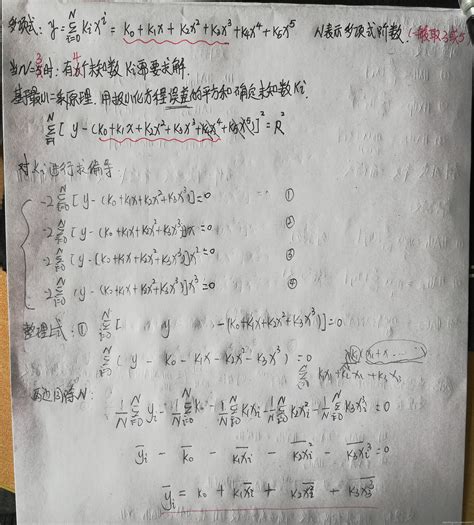 多项式: y = Σ_{i=0}^{N} Kᵢxⁱ = K₀+K₁x+K₂x²+K₃x³+K₄x⁴+K₅x⁵ N表示多项式阶数. (一般取3或5
当N=3时, 有4个未知数Kᵢ需要求解.
基于最小二乘原理, 用最小化方程误差的平方和确定未知数Kᵢ.
Σ [y-(K₀+K₁x+K₂x²+K₃x³+K₄x⁴+K₅x⁵)]² = R²
对Kᵢ进行求偏导:
-2Σ_{i=0}^{N}[y-(K₀+K₁x+K₂x²+K₃x³)]=0 ①
-2Σ_{i=0}^{N}[y-(K₀+K₁x+K₂x²+K₃x³)]x=0 ②
-2Σ_{i=0}^{N}[y-(K₀+K₁x+K₂x²+K₃x³)]x²=0 ③
-2Σ_{i=0}^{N}[y-(K₀+K₁x+K₂x²+K₃x³)]x³=0 ④
整理式: ① Σ_{i=0}^{N}[ y -(K₀+K₁x+K₂x²+K₃x³)]=0
Σ_{i=0}^{N}(y-K₀-K₁x-K₂x²-K₃x³)=0
两边同除N:
1/N Σ_{i=0}^{N} yᵢ - 1/N Σ_{i=0}^{N} K₀ - 1/N Σ_{i=0}^{N} K₁xᵢ - 1/N Σ_{i=0}^{N} K₂xᵢ² - 1/N Σ_{i=0}^{N} K₃xᵢ³ = 0
y̅ᵢ - K̅₀ - K₁x̅ᵢ - K₂x̅ᵢ² - K₃x̅ᵢ³ = 0
y̅ᵢ = K₀ + K₁x̅ᵢ + K₂x̅ᵢ² + K₃x̅ᵢ³